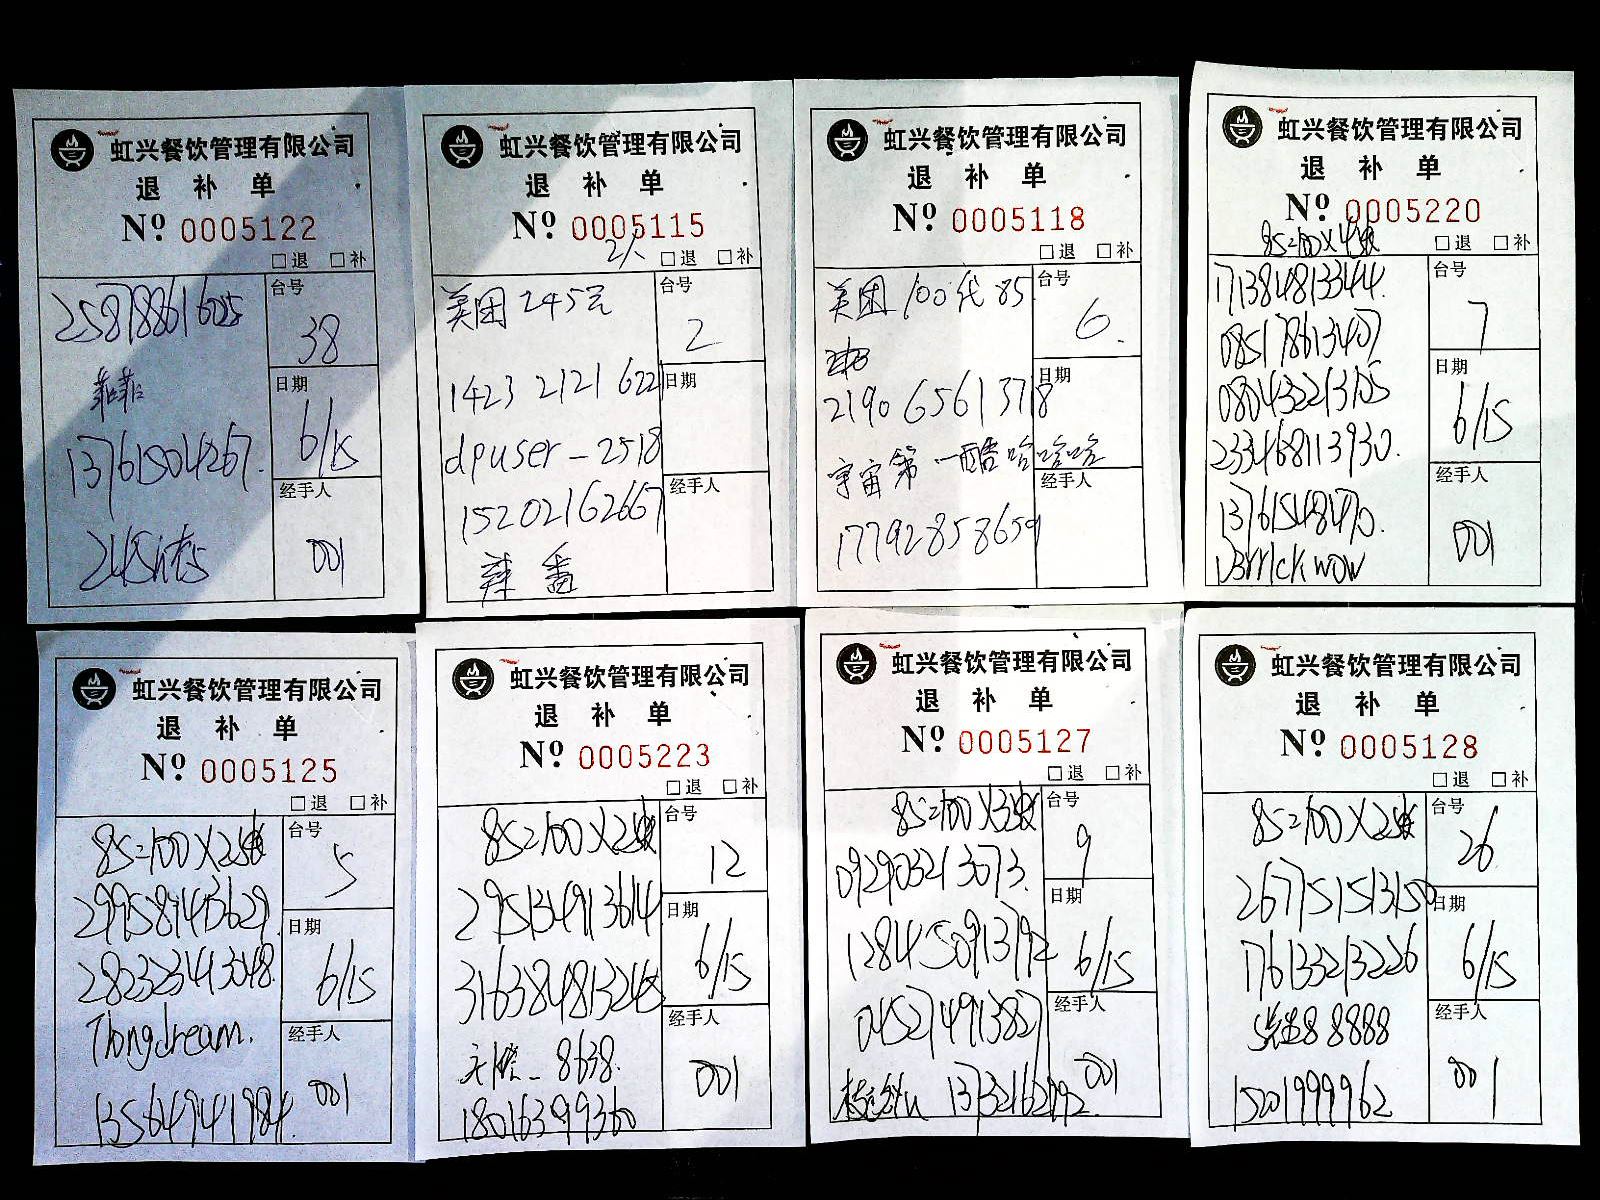 虹兴餐饮管理有限公司
退 补 单
Nº 0005122
□退 □补
台号
38
菲菲
日期
6/15
13761504267.
经手人
001
虹兴餐饮管理有限公司
退 补 单
Nº 0005115
2人 □退 □补
美团 245元
台号
2
1423 2121 622
日期
dpuser-2518
15202162667
经手人
虹兴餐饮管理有限公司
退 补 单
Nº 0005118
□退 □补
美团 100代 85
台号
6.
日期
2190 6561 3718
宇宙第一酷哈哈哈
经手人
17792858659
虹兴餐饮管理有限公司
退 补 单
Nº 0005220
85=100X4张 □退 □补
台号
171384813344.
7
085178613407
日期
0804332213105
6/15
233468113930.
经手人
001
虹兴餐饮管理有限公司
退 补 单
Nº 0005125
□退 □补
85=100X2张
台号
5
日期
2823234413048.
6/15
Thongdream.
经手人
13564941984.
001
虹兴餐饮管理有限公司
退 补 单
Nº 0005223
□退 □补
85=100X2张
台号
12
2951349113614
日期
6/15
经手人
8638.
001
18016399360
虹兴餐饮管理有限公司
退 补 单
Nº 0005127
□退 □补
85=100X3张
台号
9
092903213073.
日期
1284450913192
6/15
经手人
001
虹兴餐饮管理有限公司
退 补 单
Nº 0005128
□退 □补
85=100X2张
台号
26
2677515513150
日期
176133213226
6/15
经手人
8888
001
15201999962